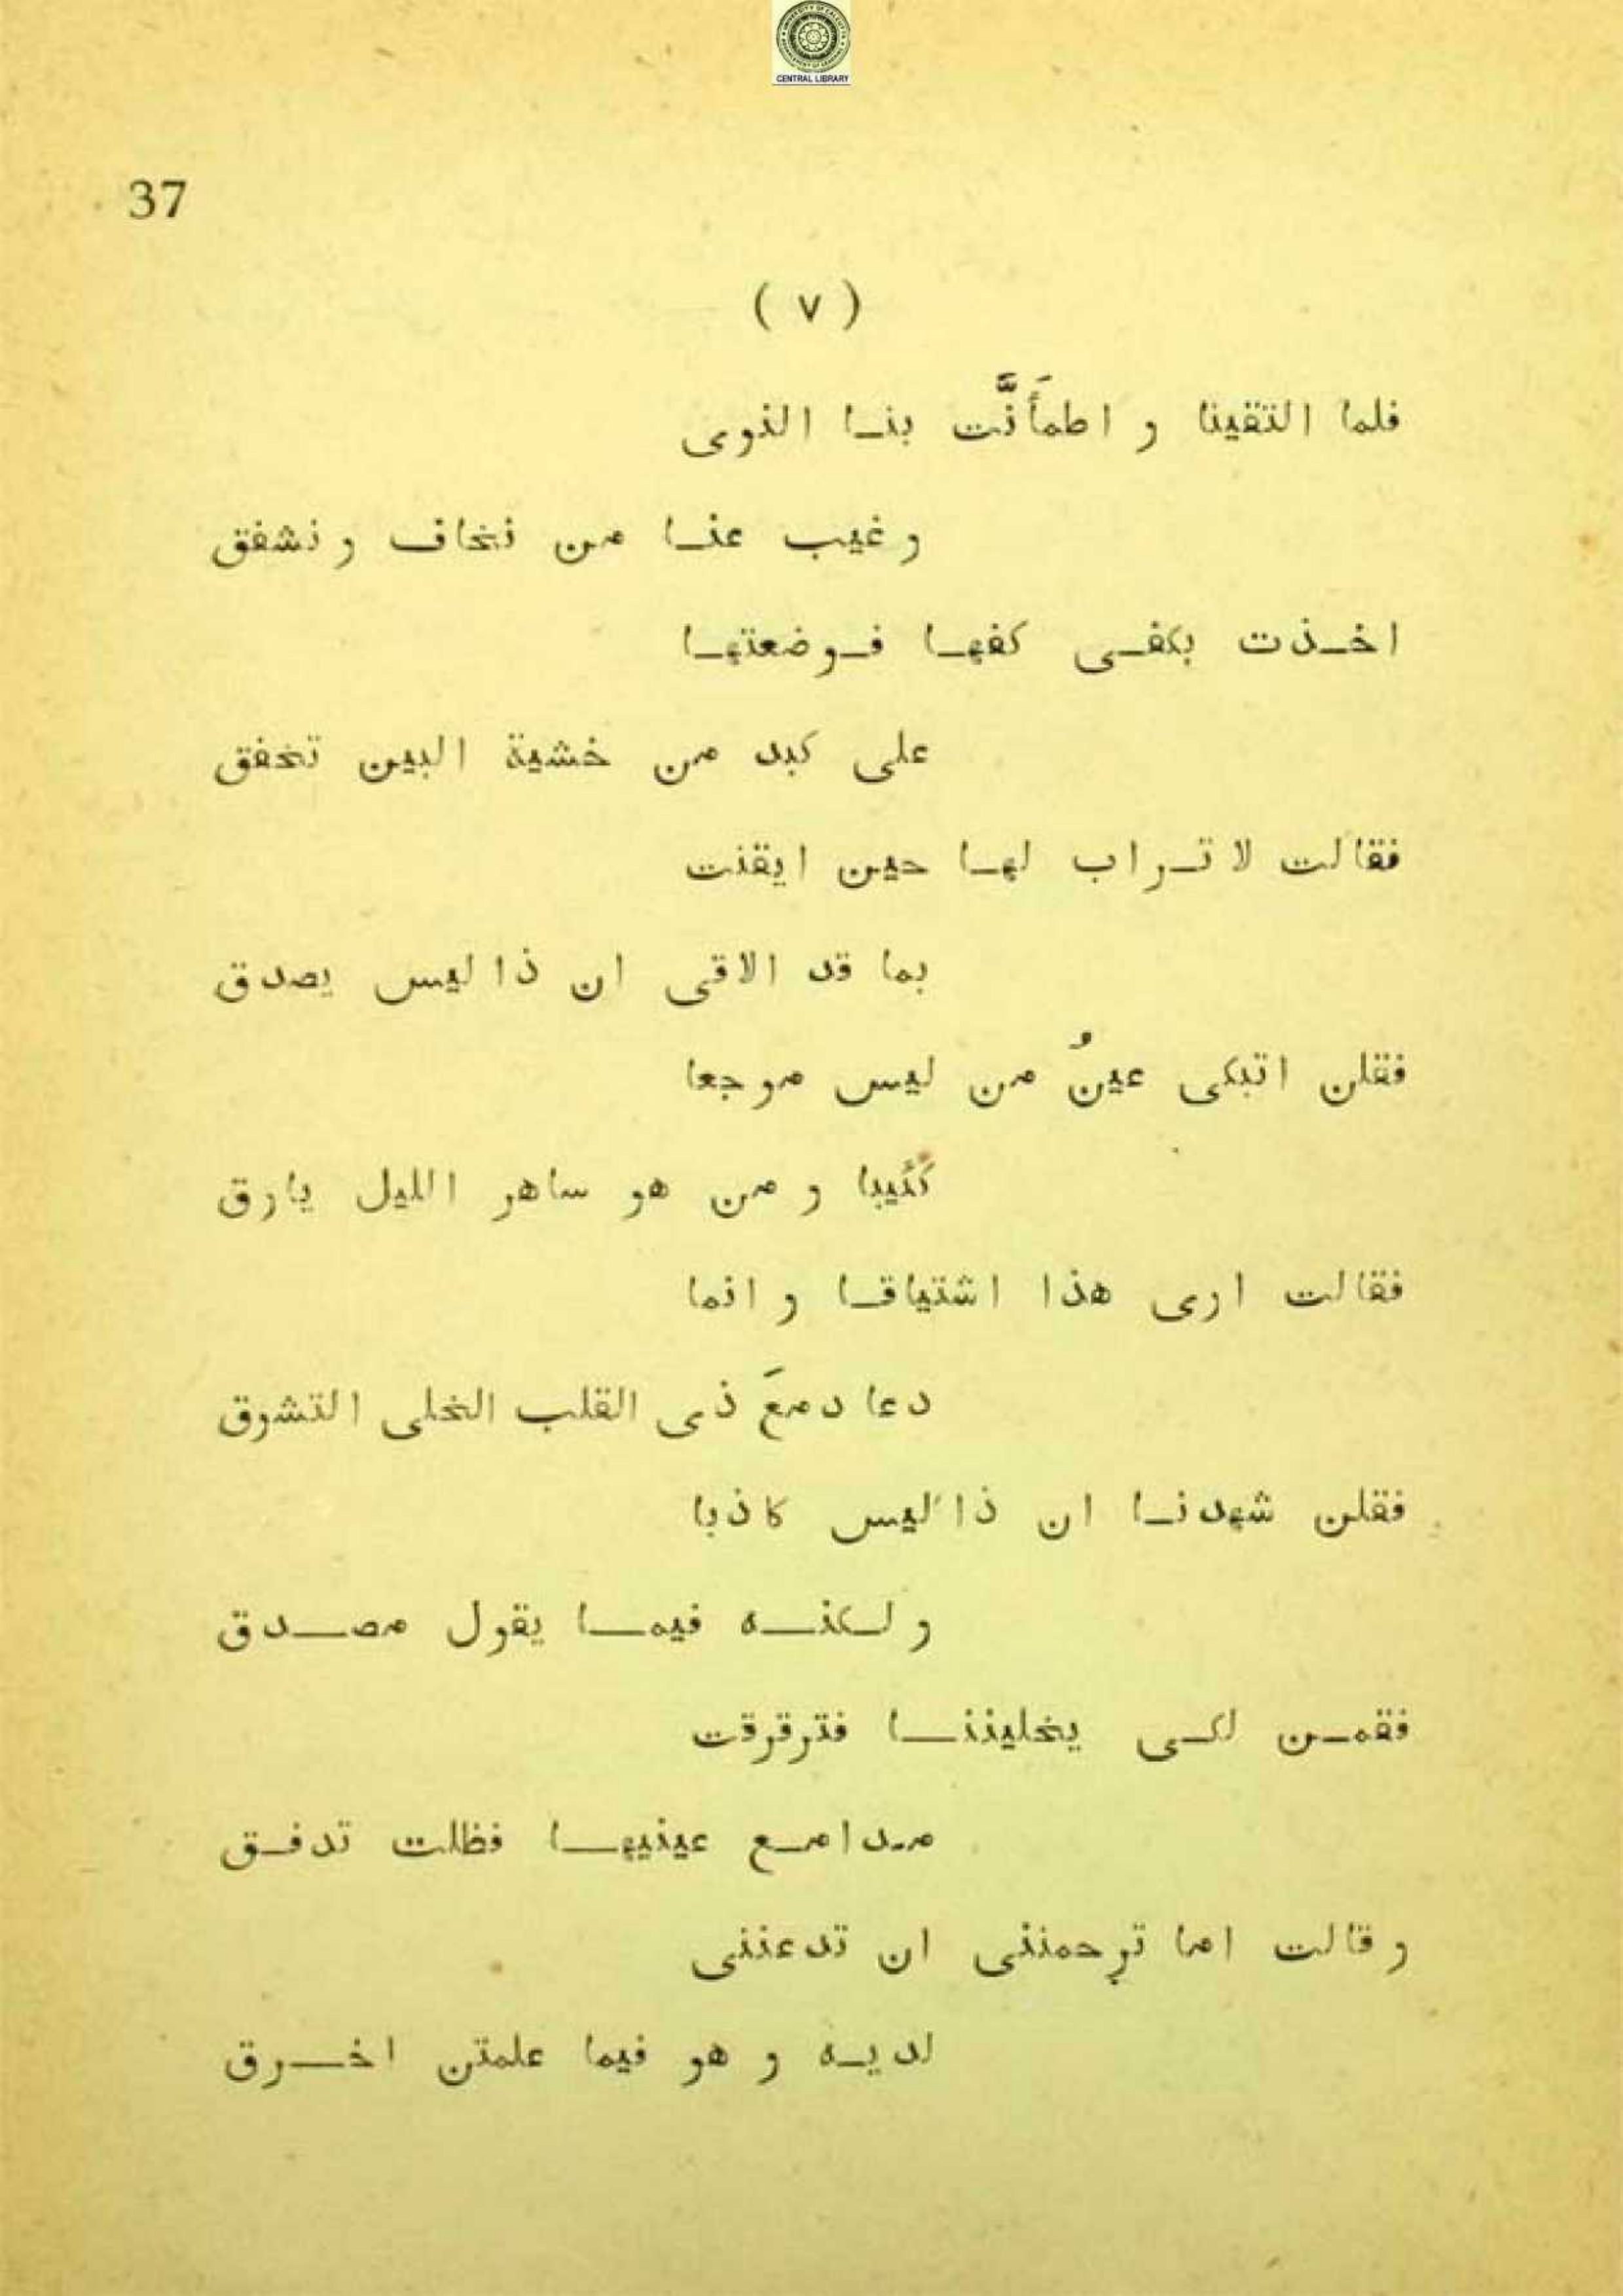 CENTRAL LIBRARY
37
( ٧ )
فلما التقينا و اطمأَنَّت بنا النوى
و غيب عنا من نخاف و نشفق
اخذت بكفى كفها فوضعتها
على كبد من خشية البين تخفق
فقالت لا تراب لها حين ايقنت
بما قد الاقى ان ذا ليس يصدق
فقلن اتبكى عينُ من ليس موجعا
كئيبا و من هو ساهر الليل يارق
فقالت ارى هذا اشتياقا و انما
دعا دمعَ ذى القلب الخلى التشوق
فقلن شهدنا ان ذا ليس كاذبا
و لكنه فيما يقول مصدق
فقمن لكى يخليننا فترقرقت
مدامع عينيها فظلت تدفق
و قالت اما ترحمننى ان تدعننى
لديه و هو فيما علمتن اخرق